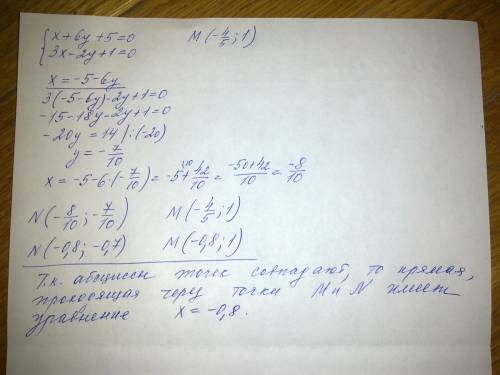 {x+6y+5=0      M(-4/5; 1)
{3x-2y+1=0
x=-5-6y
3(-5-6y)-2y+1=0
-15-18y-2y+1=0
-20y=14 |:(-20)
y=-7/10
x=-5-6·(-7/10)=-5\10+42/10=(-50+42)/10=-8/10
N(-8/10; -7/10)   M(-4/5; 1)
N(-0,8; -0,7)   M(-0,8; 1)
Т.к. абциссы точек совпадают, то прямая,
проходящая через точки M и N имеет
уравнение   x=-0,8.